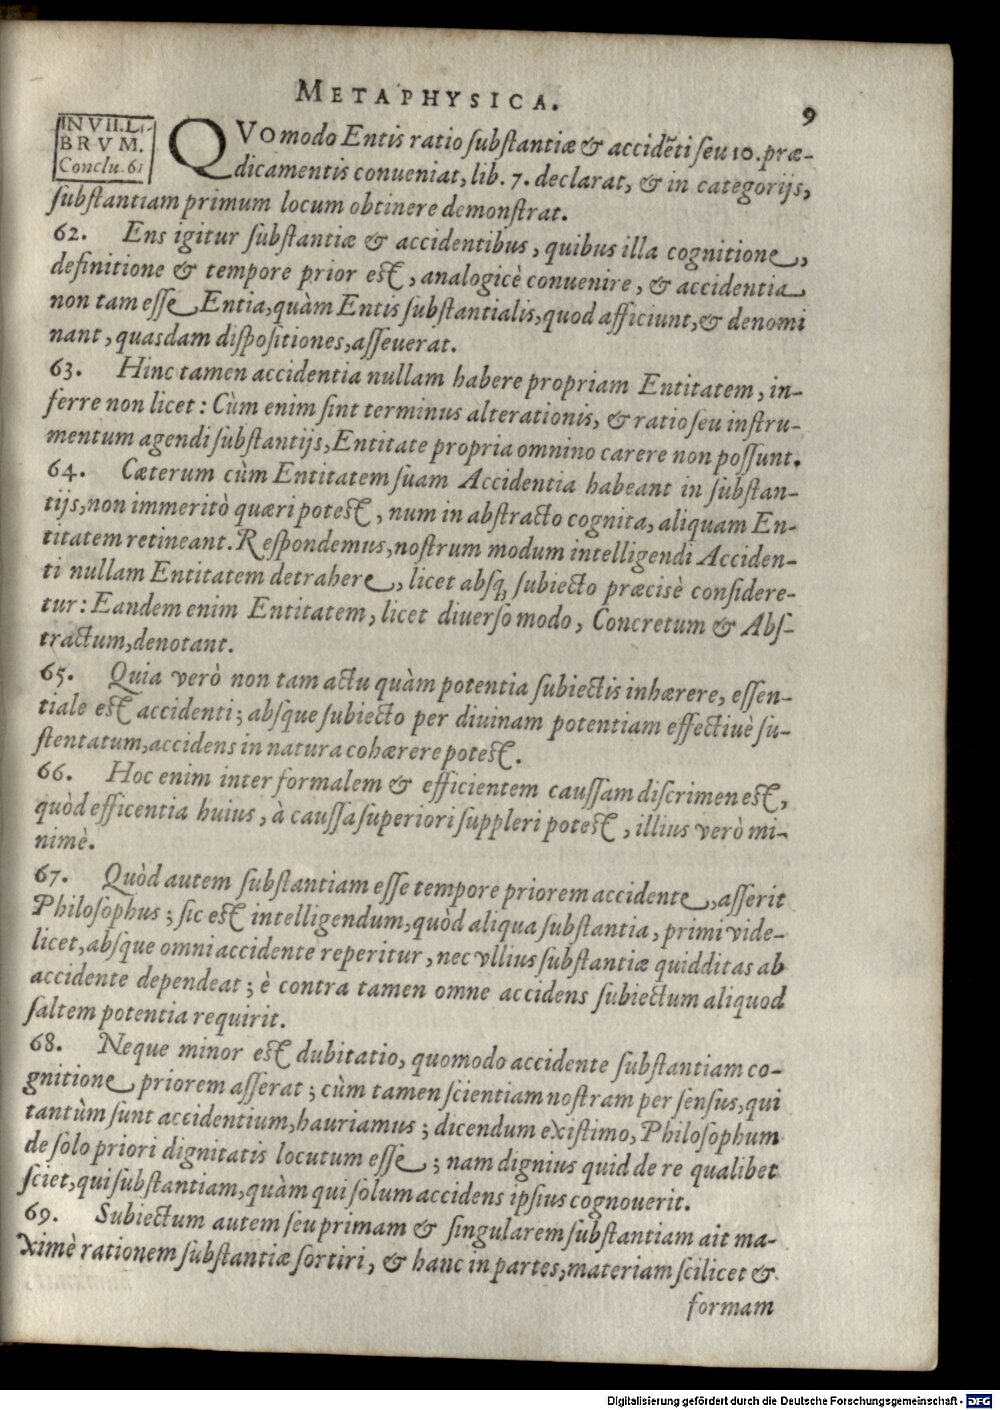 METAPHYSICA.
9
IN VII. LI-
BRVM.
Conclu. 61
QVomodo Entis ratio substantiæ & accidẽti seu 10. præ-
dicamentis conueniat, lib. 7. declarat, & in categorijs,
substantiam primum locum obtinere demonstrat.
62. Ens igitur substantiæ & accidentibus, quibus illa cognitione,
definitione & tempore prior est, analogicè conuenire, & accidentia
non tam esse Entia, quàm Entis substantialis, quod afficiunt, & denomi
nant, quasdam dispositiones, asseuerat.
63. Hinc tamen accidentia nullam habere propriam Entitatem, in-
ferre non licet: Cùm enim sint terminus alterationis, & ratio seu instru-
mentum agendi substantijs, Entitate propria omnino carere non possunt.
64. Cæterum cùm Entitatem suam Accidentia habeant in substan-
tijs, non immeritò quæri potest, num in abstracto cognita, aliquam En-
titatem retineant. Respondemus, nostrum modum intelligendi Acciden-
ti nullam Entitatem detrahere, licet absq; subiecto præcisè considere-
tur: Eandem enim Entitatem, licet diuerso modo, Concretum & Abs-
tractum, denotant.
65. Quia verò non tam actu quàm potentia subiectis inhærere, essen-
tiale est accidenti; absque subiecto per diuinam potentiam effectiuè su-
stentatum, accidens in natura cohærere potest.
66. Hoc enim inter formalem & efficientem caussam discrimen est,
quòd efficentia huius, à caussa superiori suppleri potest, illius verò mi-
nimè.
67. Quòd autem substantiam esse tempore priorem accidente, asserit
Philosophus; sic est intelligendum, quòd aliqua substantia, primi vide-
licet, absque omni accidente reperitur, nec vllius substantiæ quidditas ab
accidente dependeat; è contra tamen omne accidens subiectum aliquod
saltem potentia requirit.
68. Neque minor est dubitatio, quomodo accidente substantiam co-
gnitione priorem asserat; cùm tamen scientiam nostram per sensus, qui
tantùm sunt accidentium, hauriamus; dicendum existimo, Philosophum
de solo priori dignitatis locutum esse; nam dignius quid de re qualibet
sciet, qui substantiam, quàm qui solum accidens ipsius cognouerit.
69. Subiectum autem seu primam & singularem substantiam ait ma-
ximè rationem substantiæ sortiri, & hanc in partes, materiam scilicet &
formam
Digitalisierung gefördert durch die Deutsche Forschungsgemeinschaft - DFG